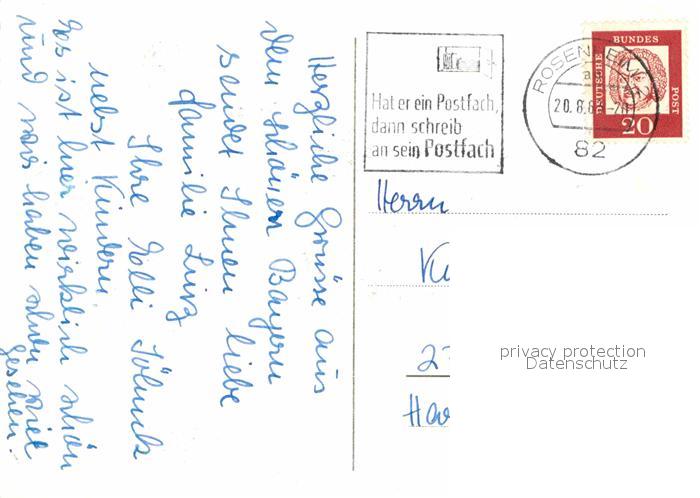 Herzliche Grüsse aus
dem schönen Bayern
sendet Ihnen liebe
Familie
Ihre Elli
nebst Kindern.
Es ist hier wirklich schön
und wir haben schon viel
gesehen.
Hat er ein Postfach,
dann schreib
an sein Postfach
ROSENHEIM
20.8.6
82
DEUTSCHE
BUNDES
POST
20
Herrn
privacy protection
Datenschutz